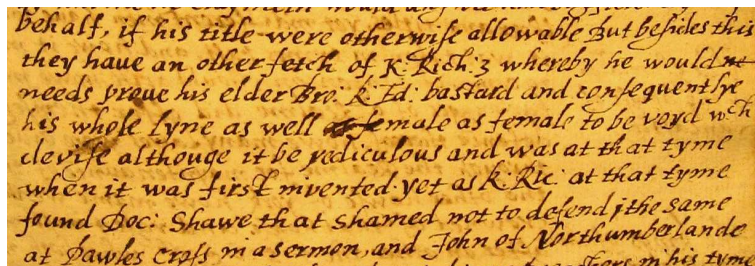 behalf, if his title were otherwise allowable But besides this
they haue an other fetch of K: Rich: 3 whereby he would
needs proue his elder Bro: K: Ed: bastard and consequentlye
his whole lyne as well male as female to be voyd wch
devise althouge it be rediculous and was at that tyme
when it was first invented yet as K: Ric: at that tyme
found Doc: Shawe that shamed not to defend the same
at Pawles Cross in a sermon, and John of Northumberlande
in his tyme